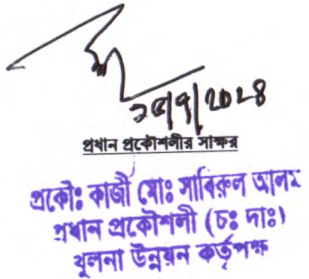 প্রধান প্রকৌশলীর সাক্ষর
প্রকৌঃ কাজী মোঃ সাবিরুল আলম
প্রধান প্রকৌশলী (চঃ দাঃ)
খুলনা উন্নয়ন কর্তৃপক্ষ